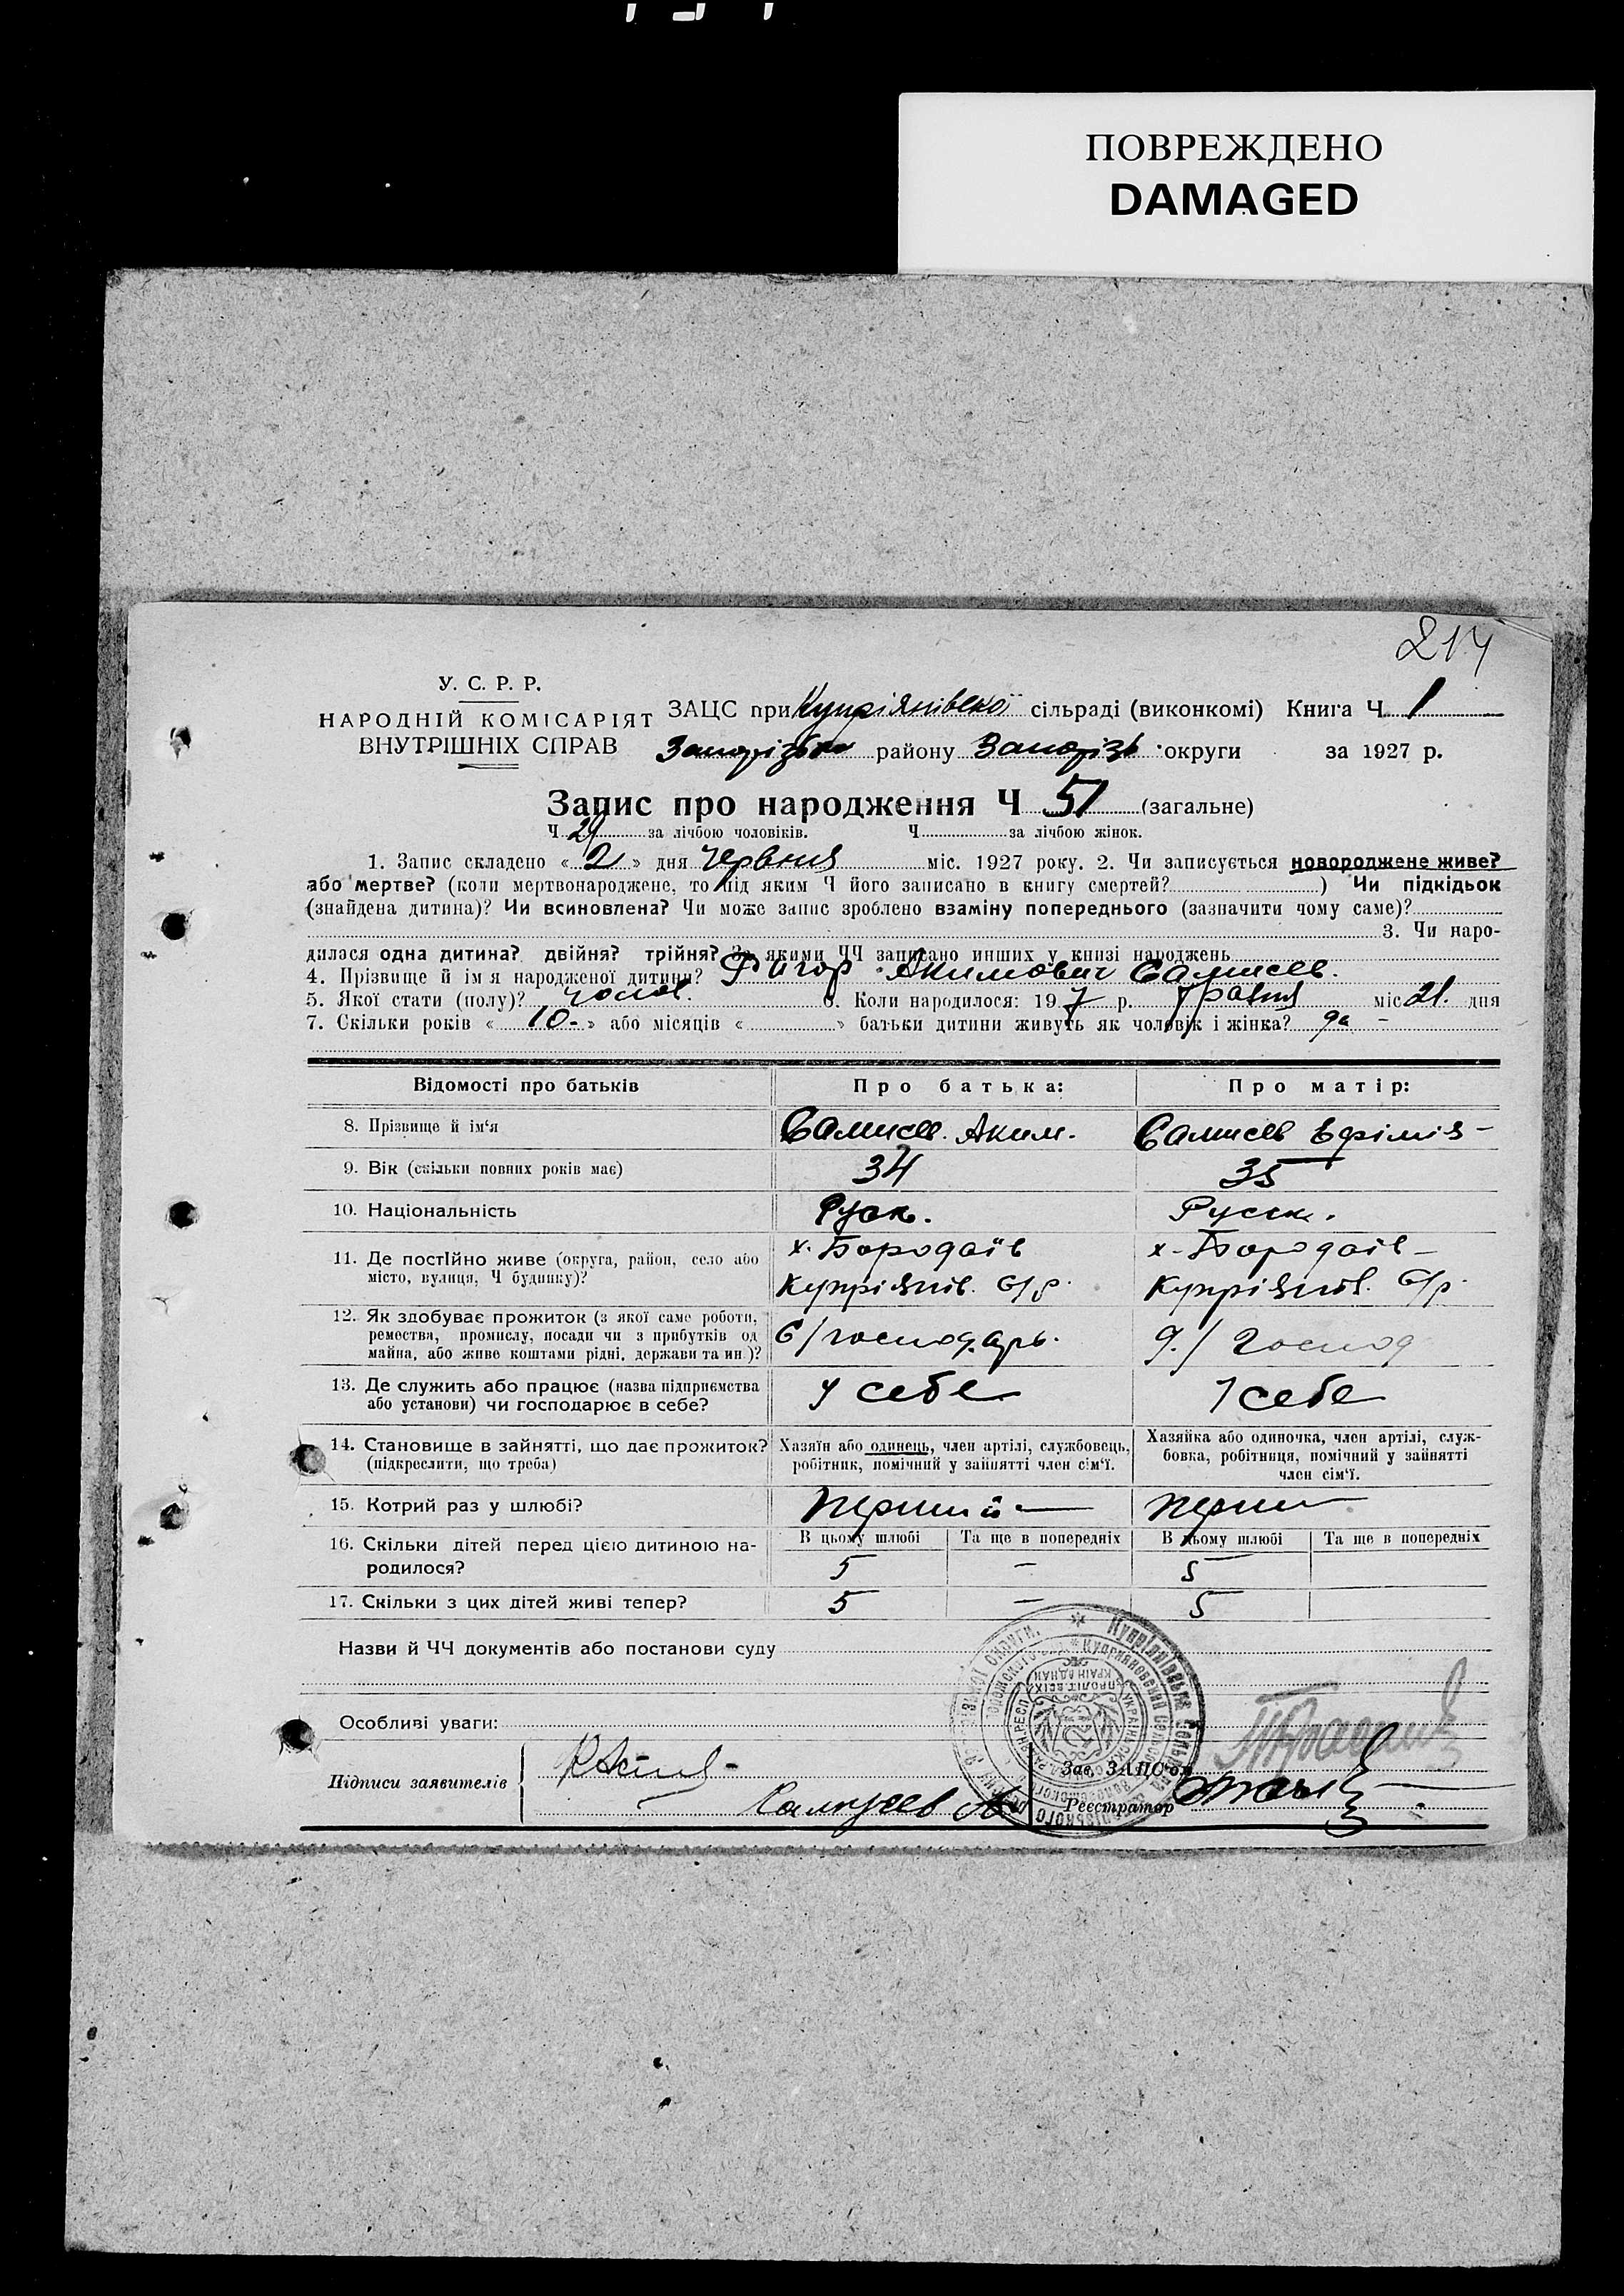 ПОВРЕЖДЕНО
DAMAGED
214
У. С. Р. Р.
НАРОДНІЙ КОМІСАРІЯТ
ВНУТРІШНІХ СПРАВ
ЗАЦС при Купріянівскої сільраді (виконкомі) Книга Ч. 1
району Запоріз округи за 1927 р.
Запис про народження Ч 51 (загальне)
Ч. 29 за лічбою чоловіків. Ч. за лічбою жінок.
1. Запис складено « 21 » дня Червня міс. 1927 року. 2. Чи записується новороджене живе?
або мертве? (коли мертвонароджене, то під яким Ч його записано в книгу смертей? ) Чи підкідьок
(знайдена дитина)? Чи всиновлена? Чи може запис зроблено взаміну попереднього (зазначити чому саме)?
3. Чи наро-
дилася одна дитина? двійня? трійня? За якими ЧЧ записано инших у книзі народжень
4. Прізвище й імя народженої дитини? Фигор Акимович Салтисев.
5. Якої стати (полу)? чолов. 6. Коли народилося: 19 7 р. Травня міс 21. дня
7. Скільки років « 10- » або місяців « » батьки дитини живуть як чоловік і жінка? да -
Відомості про батьків
Про батька:
Про матір:
8. Прізвище й ім‘я Аким. Ефімія -
9. Вік (скільки повних років має) 34 35
10. Національність Руск. Русск.
11. Де постІйно живе (округа, район, село або х. Бородаїв х- Бородаїв -
місто, вулиця, Ч будинку)? Купріянів. С/р. Купріянів. С/р.
12. Як здобуває прожиток (з якої саме роботи,
ремества, промислу, посади чи з прибутків од С/господарь. д./ Господ
майна, або живе коштами рідні, держави та ин.)?
13. Де служить або працює (назва підприємства У себе У себе
або установи) чи господарює в себе?
14. Становище в зайнятті, що дає прожиток? Хазяїн або одинець, член артілі, службовець, Хазяйка або одиночка, член артілі, служ-
(підкреслити, що треба) робітник, помічний у зайнятті член сім‘ї. бовка, робітниця, помічний у зайнятті
член сім‘ї.
15. Котрий раз у шлюбі? Перший - Перши
16. Скільки дітей перед цією дитиною на- В цьому шлюбі Та ще в попередніх В цьому шлюбі Та ще в попередніх
родилося? 5 - 5
17. Скільки з цих дітей живі тепер? 5 - 5
Назви й ЧЧ документів або постанови суду
Особливі уваги:
Підписи заявителів
Зав. ЗАЦС‘ом
Реєстратор